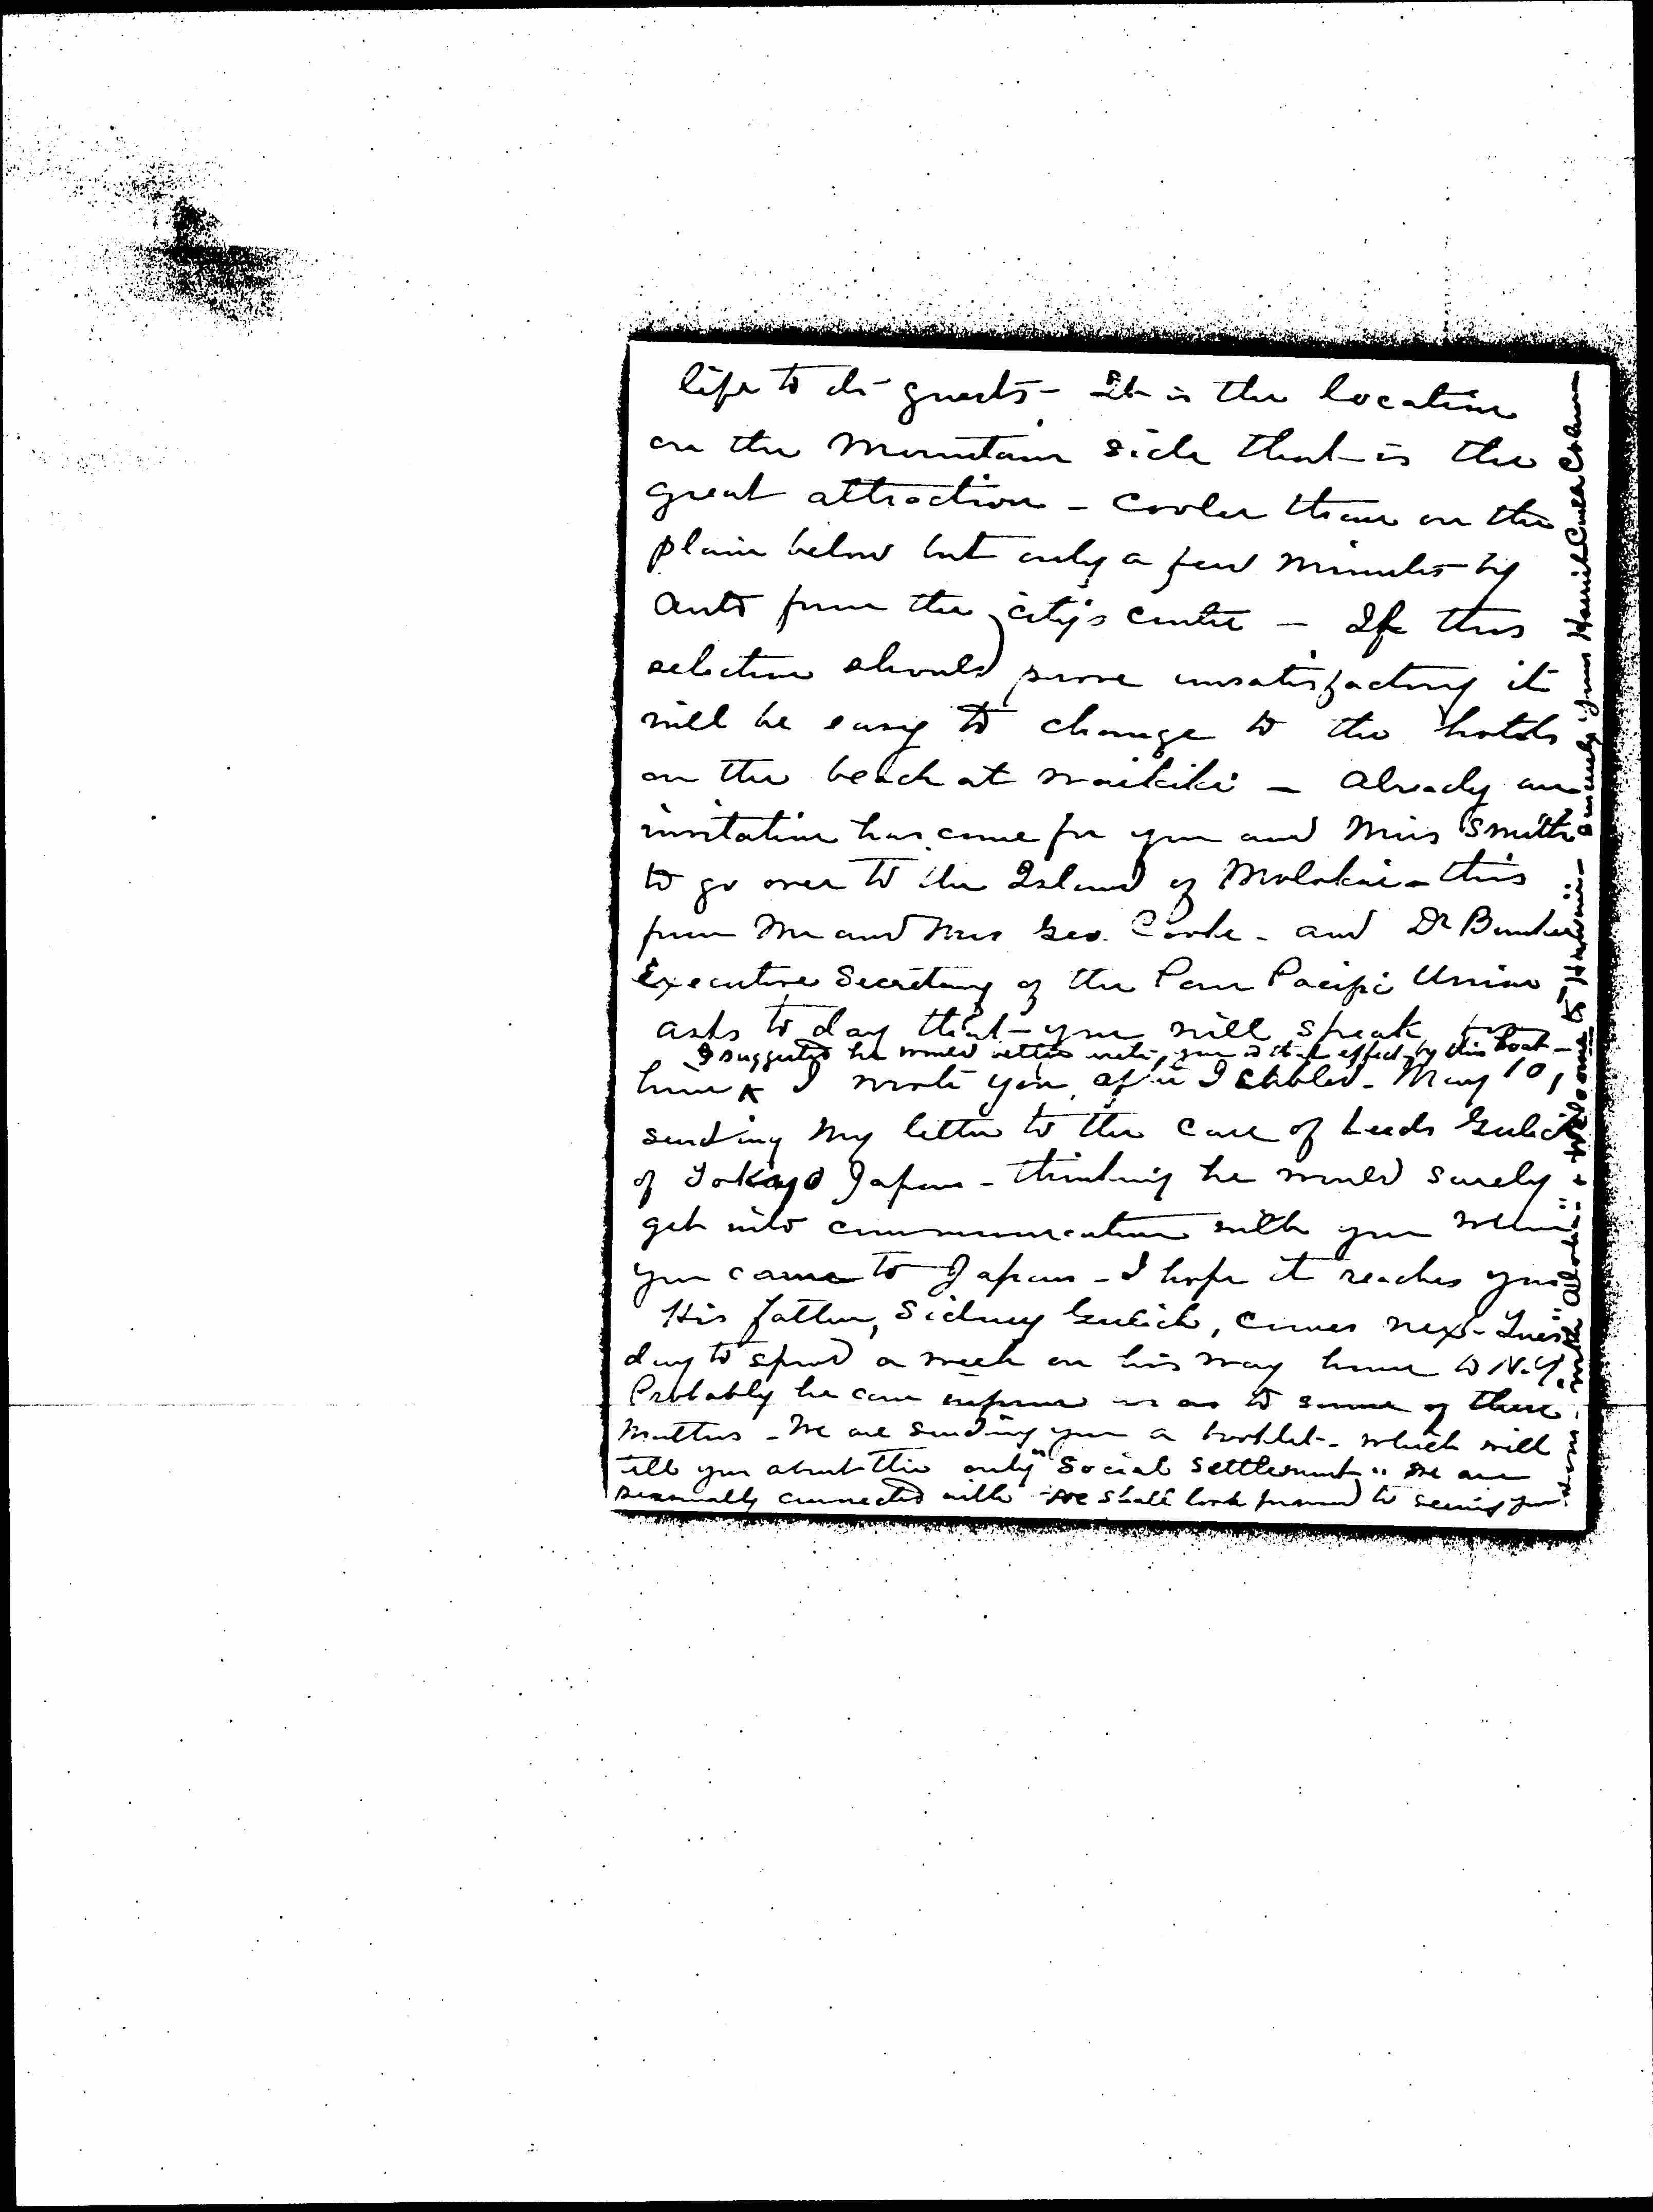 life to its guests - It is the location
on the mountain side that is the
great attraction - Cooler than on the
plain below but only a few minutes by
auto from the city's centre - If this
selection should prove unsatisfactory it
will be easy to change to the hotels
on the beach at Waikiki - Already an
invitation has come for you and Miss Smith
to go over to the Island of Molokai - this
from Mr and Mrs Geo. Cooke - and Dr Bunker
Executive Secretary of the Pan Pacific Union
asks to day that you will speak for
I suggested he would better write you to that effect by this boat -
him I wrote you, after I cabled - May 10,
sending my letter to the care of Leeds Gulick
of Tokayo Japan - thinking he would surely
get into communication with you when
you came to Japan - I hope it reaches you
His father, Sidney Gulick, comes next Tues
day to spend a week on his way home to N.Y.
Probably he can inform us as to some of these
matters - We are sending you a booklet - which will
tell you about the only "Social Settlement" we are
personally connected with - We shall look forward to seeing you
with "Aloha" & Welcome to Hawaii -
Sincerely yours Harriet Castle Coleman